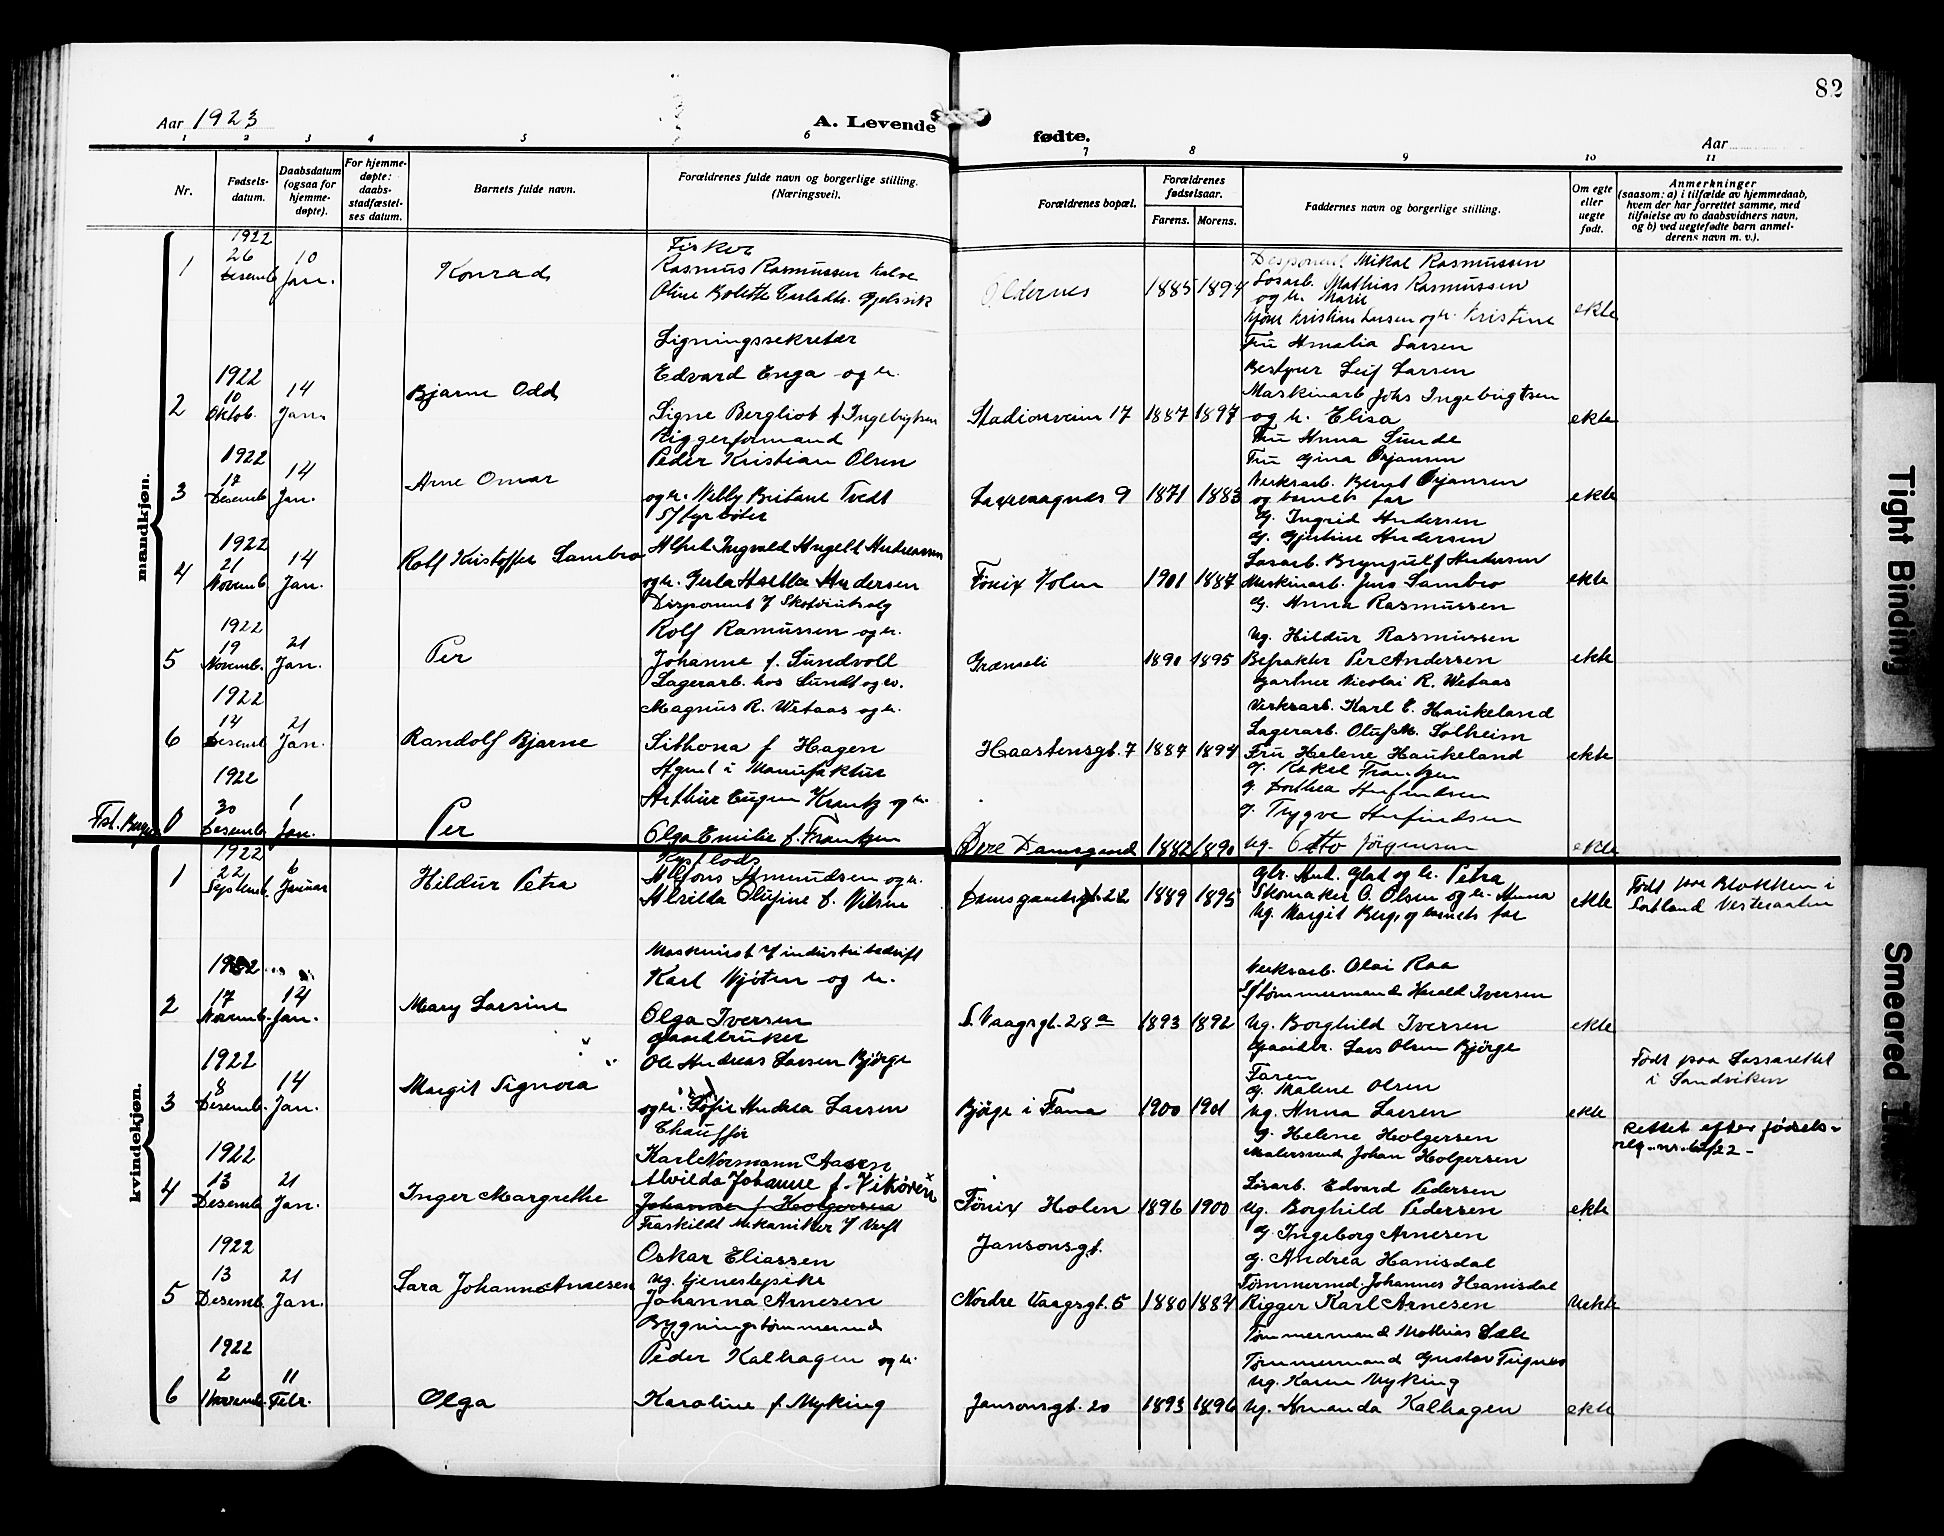 82
Aar 1923
A. Levende
fødte.
Aar
1 2 3 4 5 6 7 8 9 10 11
Nr.
Fødsels-
datum.
Daabsdatum
(ogsaa for
hjemme-
døpte).
For hjemme-
døpte:
daabs-
stadfæstel-
ses datum.
Barnets fulde navn.
Forældrenes fulde navn og borgerlige stilling.
(Næringsvei).
Forældrenes bopæl.
Forældrenes
fødselsaar.
Farens. Morens.
Faddernes navn og borgerlige stilling.
Om egte
eller
uegte
født.
Anmerkninger
(saasom: a) i tilfælde av hjemmedaab,
hvem der har forrettet samme, med
tilføielse av to daabsvidners navn,
og b) ved uegtefødte barn anmel-
derens navn m. v.).
mandkjøn.
1
1922
26
Desemb.
10
Jan.
Konrad
Fisker
Rasmus Rasmussen
Oline Bolette
Oldernes
1885 1894
Disponent Mikal Rasmussen
Løsarb. Mathias Rasmussen
og h. Marie
Kristian Larsen og h. Kristine
ekte
2
1922
10
Oktob.
14
Jan.
Bjarne Odd
Ligningssekretær
Edvard Enga og h.
Signe Bergliot f. Ingebrigtsen
Stadionveien 17
1887 1897
Fru Amalia Larsen
Bestyrer Leif Larsen
Maskinarb. Johs Ingebrigtsen
og h. Elisa
ekte
3
1922
17
Desemb.
14
Jan.
Arne Omar
Riggerformand
Peder Kristian Olsen
og h. Nelly Tvedt
Laxevaagnes 9
1871 1883
Fru Anna Sunde
Fru Gina Ørjansen
Verksarb. Bernt Ørjansen
og barnets far
ekte
4
1922
21
Novemb.
14
Jan.
Rolf Kristoffer Sambro
Styrbøter
Alfred Ingvald Angell Andreassen
og h. Andersen
Fønix Holen
1901 1887
G. Ingrid Andersen
G. Gjertine Andersen
Løsarb. Brynjulf Andersen
Maskinarb. Jens Sambro
G. Anna Rasmussen
ekte
5
1922
19
Novemb.
21
Jan.
Per
Disponent
Rolf Rasmussen og h.
Johanne f. Sundvoll
Grænseli
1890 1895
Ug. Hildur Rasmussen
Befrakter Per Andersen
Gartner Nicolai R. Wetaas
ekte
6
1922
14
Desemb.
21
Jan.
Randolf Bjarne
Lagerarb. hos Sundt og Co.
Magnus R. Wetaas og h.
Sithona f. Hagen
Haasteinsgt. 7
1887 1894
Verksarb. Karl E. Haukeland
Lagerarb. Oluf M. Solheim
Fru Helene Haukeland
ekte
0
1922
30
Desemb.
1
Jan.
Per
Agent i Manufaktur
Arthur Eugen Krantz og h.
Olga Emilie f. Frantzen
Øvre Damsgaard
1882 1890
G. Rakel Frantzen
G. Dorthea
G. Trygve
Ug. Otto Jørgensen
ekte
kvindekjøn.
1
1922
22
Septemb.
6
Januar
Hildur Petra
Kystlods
Alfons Amundsen og h.
Alvilda Olufine f. Nilsen
Damsgaardsgt. 22
1889 1895
Glat og h. Petra
Skomaker O. Olsen og h. Anna
Ug. Margit Berg og barnets far
ekte
Født paa Blokken i
Sortland Vesteraalen
2
1922
17
Novemb.
14
Jan.
Mary Larsine
Maskinist v/ industribedrift
Karl Njøten og h.
Olga Iversen
S. Vaagsgt. 28a
1893 1892
Verksarb. Olai Raa
Tømmermand Harald Iversen
Ug. Borghild Iversen
ekte
3
1922
8
Desemb.
14
Jan.
Margit Signora
Gaardbruker
Ole Andreas Larsen Bjørge
og h. Sofie Andrea Larsen
Bjørge i Fana
1900 1901
Gaardbr. Lars Olsen Bjørge
Faren
G. Malene Olsen
Ug. Anna Larsen
ekte
Født paa Lassarettet
i Sandviken
4
1922
13
Desemb.
21
Jan.
Inger Margrethe
Chauffør
Karl Normann Aasen
Alvilda Johanne f. Vikøren
Johanne f. Holgersen
Fønix Holen
1896 1900
G. Helene Holgersen
Malersvend Johan Holgersen
Løsarb. Edvard Pedersen
Ug. Borghild Pedersen
ekte
Rettet efter fødsels-
5
1922
13
Desemb.
21
Jan.
Sara Johanne Arnesen
Fraskildt Mekaniker v/ Verft
Oskar Eliassen
Ug. tjenestepike
Johanna Arnesen
Jansonsgt.
Nordre Vaagsgt. 5
1880 1884
G. Ingeborg Arnesen
G. Andrea Hanisdal
Tømmermd. Johannes Hanisdal
Rigger Karl Arnesen
Uekte
6
1922
2
Novemb.
11
Febr.
Olga
Bygningstømmermd.
Peder Kalhagen og h.
Karoline f. Myking
Jansonsgt. 20
1893 1896
Tømmermand Mathias Sæle
Tømmermand Gustav
Ug. Karen Myking
Ug. Amanda Kalhagen
ekte
Tight Binding
Smeared